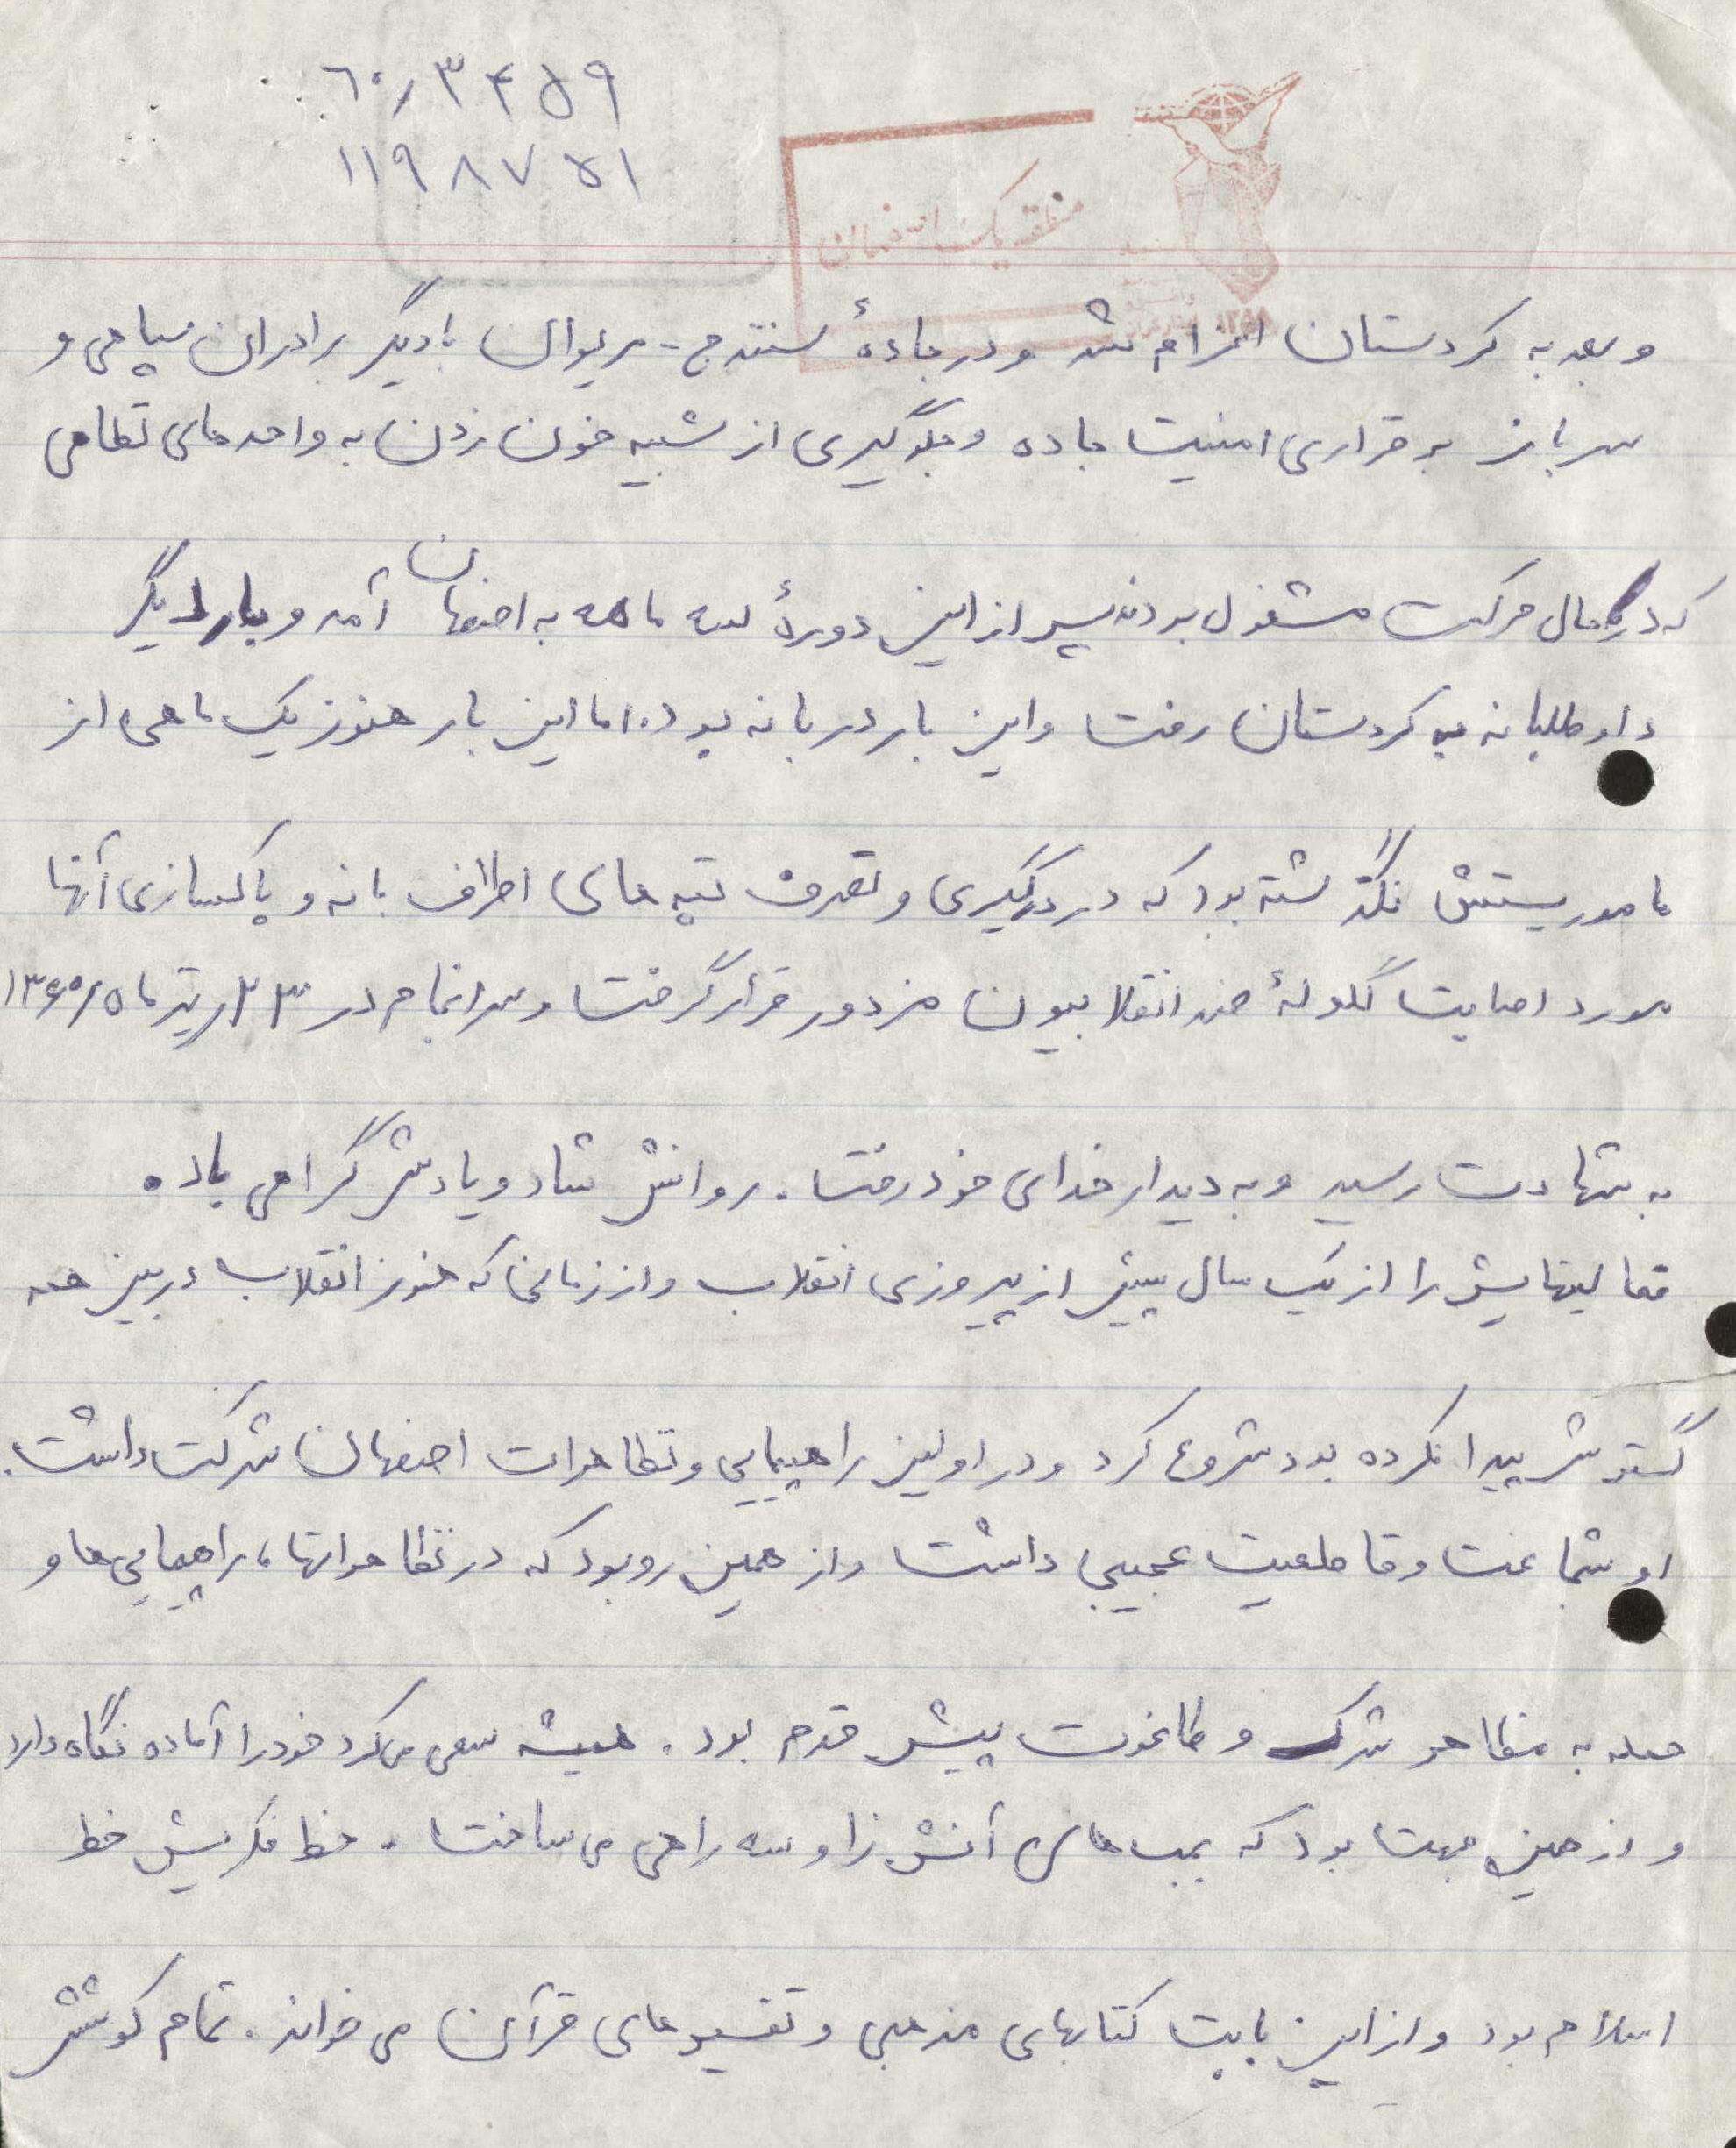 ۶۰/۳۴۵۹
۱۱۹۸۷۵۱
منطقه یک اصفهان
و بعد به کردستان اعزام شد و در جادهٔ سنندج - مریوان با دیگر برادران سپاهی و
سرباز برقراری امنیت جاده و جلوگیری از شبیه خون زدن به واحدهای نظامی
که در حال حرکت مشغول بودند پس از این دورهٔ سه ماهه به اصفهان آمد و بار دیگر
داوطلبانه به کردستان رفت و این بار در بانه بود. اما این بار هنوز یک ماهی از
ماموریتش نگذشته بود که در درگیری و تصرف تپه های اطراف بانه و پاکسازی آنها
مورد اصابت گلولهٔ ضد انقلابیون مزدور قرار گرفت و سرانجام در ۲۳ تیر ماه ۱۳۶۰
به شهادت رسید و به دیدار خدای خود رفت. روانش شاد و یادش گرامی باد.
فعالیتهایش را از یک سال پیش از پیروزی انقلاب و از زمانی که هنوز انقلاب در بین همه
گسترش پیدا نکرده بود شروع کرد و در اولین راهپیمایی و تظاهرات اصفهان شرکت داشت.
او شجاعت و قاطعیت عجیبی داشت و از همین رو بود که در تظاهراتها، راهپیمایی ها و
حمله به مظاهر شرک و طاغوت پیش قدم بود. همیشه سعی می کرد خود را آماده نگاه دارد
و از همین جهت بود که بمب های آتش زا و سه راهی می ساخت. خط فکریش خط
اسلام بود و از این بابت کتابهای مذهبی و تفسیرهای قرآن می خواند. تمام کوشش